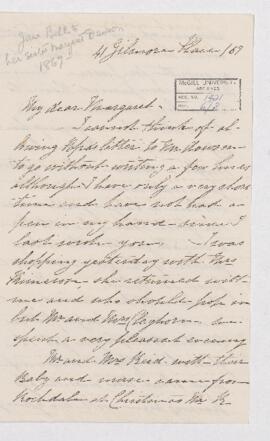 Jane Bell to
her sister Margaret Dawson
1869
41 Gilmore Place /69
McGILL UNIVERSITY
ARCHIVES
ACC. NO. 1421
REF.
My dear Margaret -
I cannot think of al-
lowing Papa's letter to Mr Dawson
to go without writing a few lines
although I have only a very short
time and have not had a
pen in my hand since I
last wrote you. - I was
shopping yesterday with Mrs
she returned with
me and who should pop in
but Mr and Mrs Cleghorn we
spent a very pleasant evening
Mr and Mrs Reid with their
Baby and nurse came from
Rochdale at Christmas Mr R